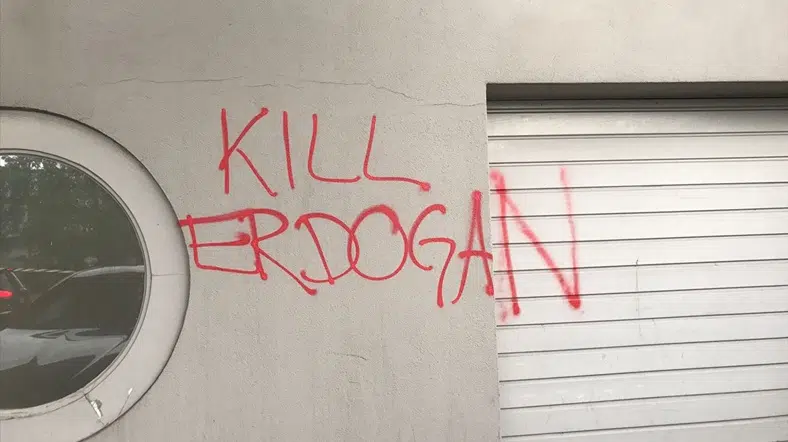 KILL
ERDOGAN